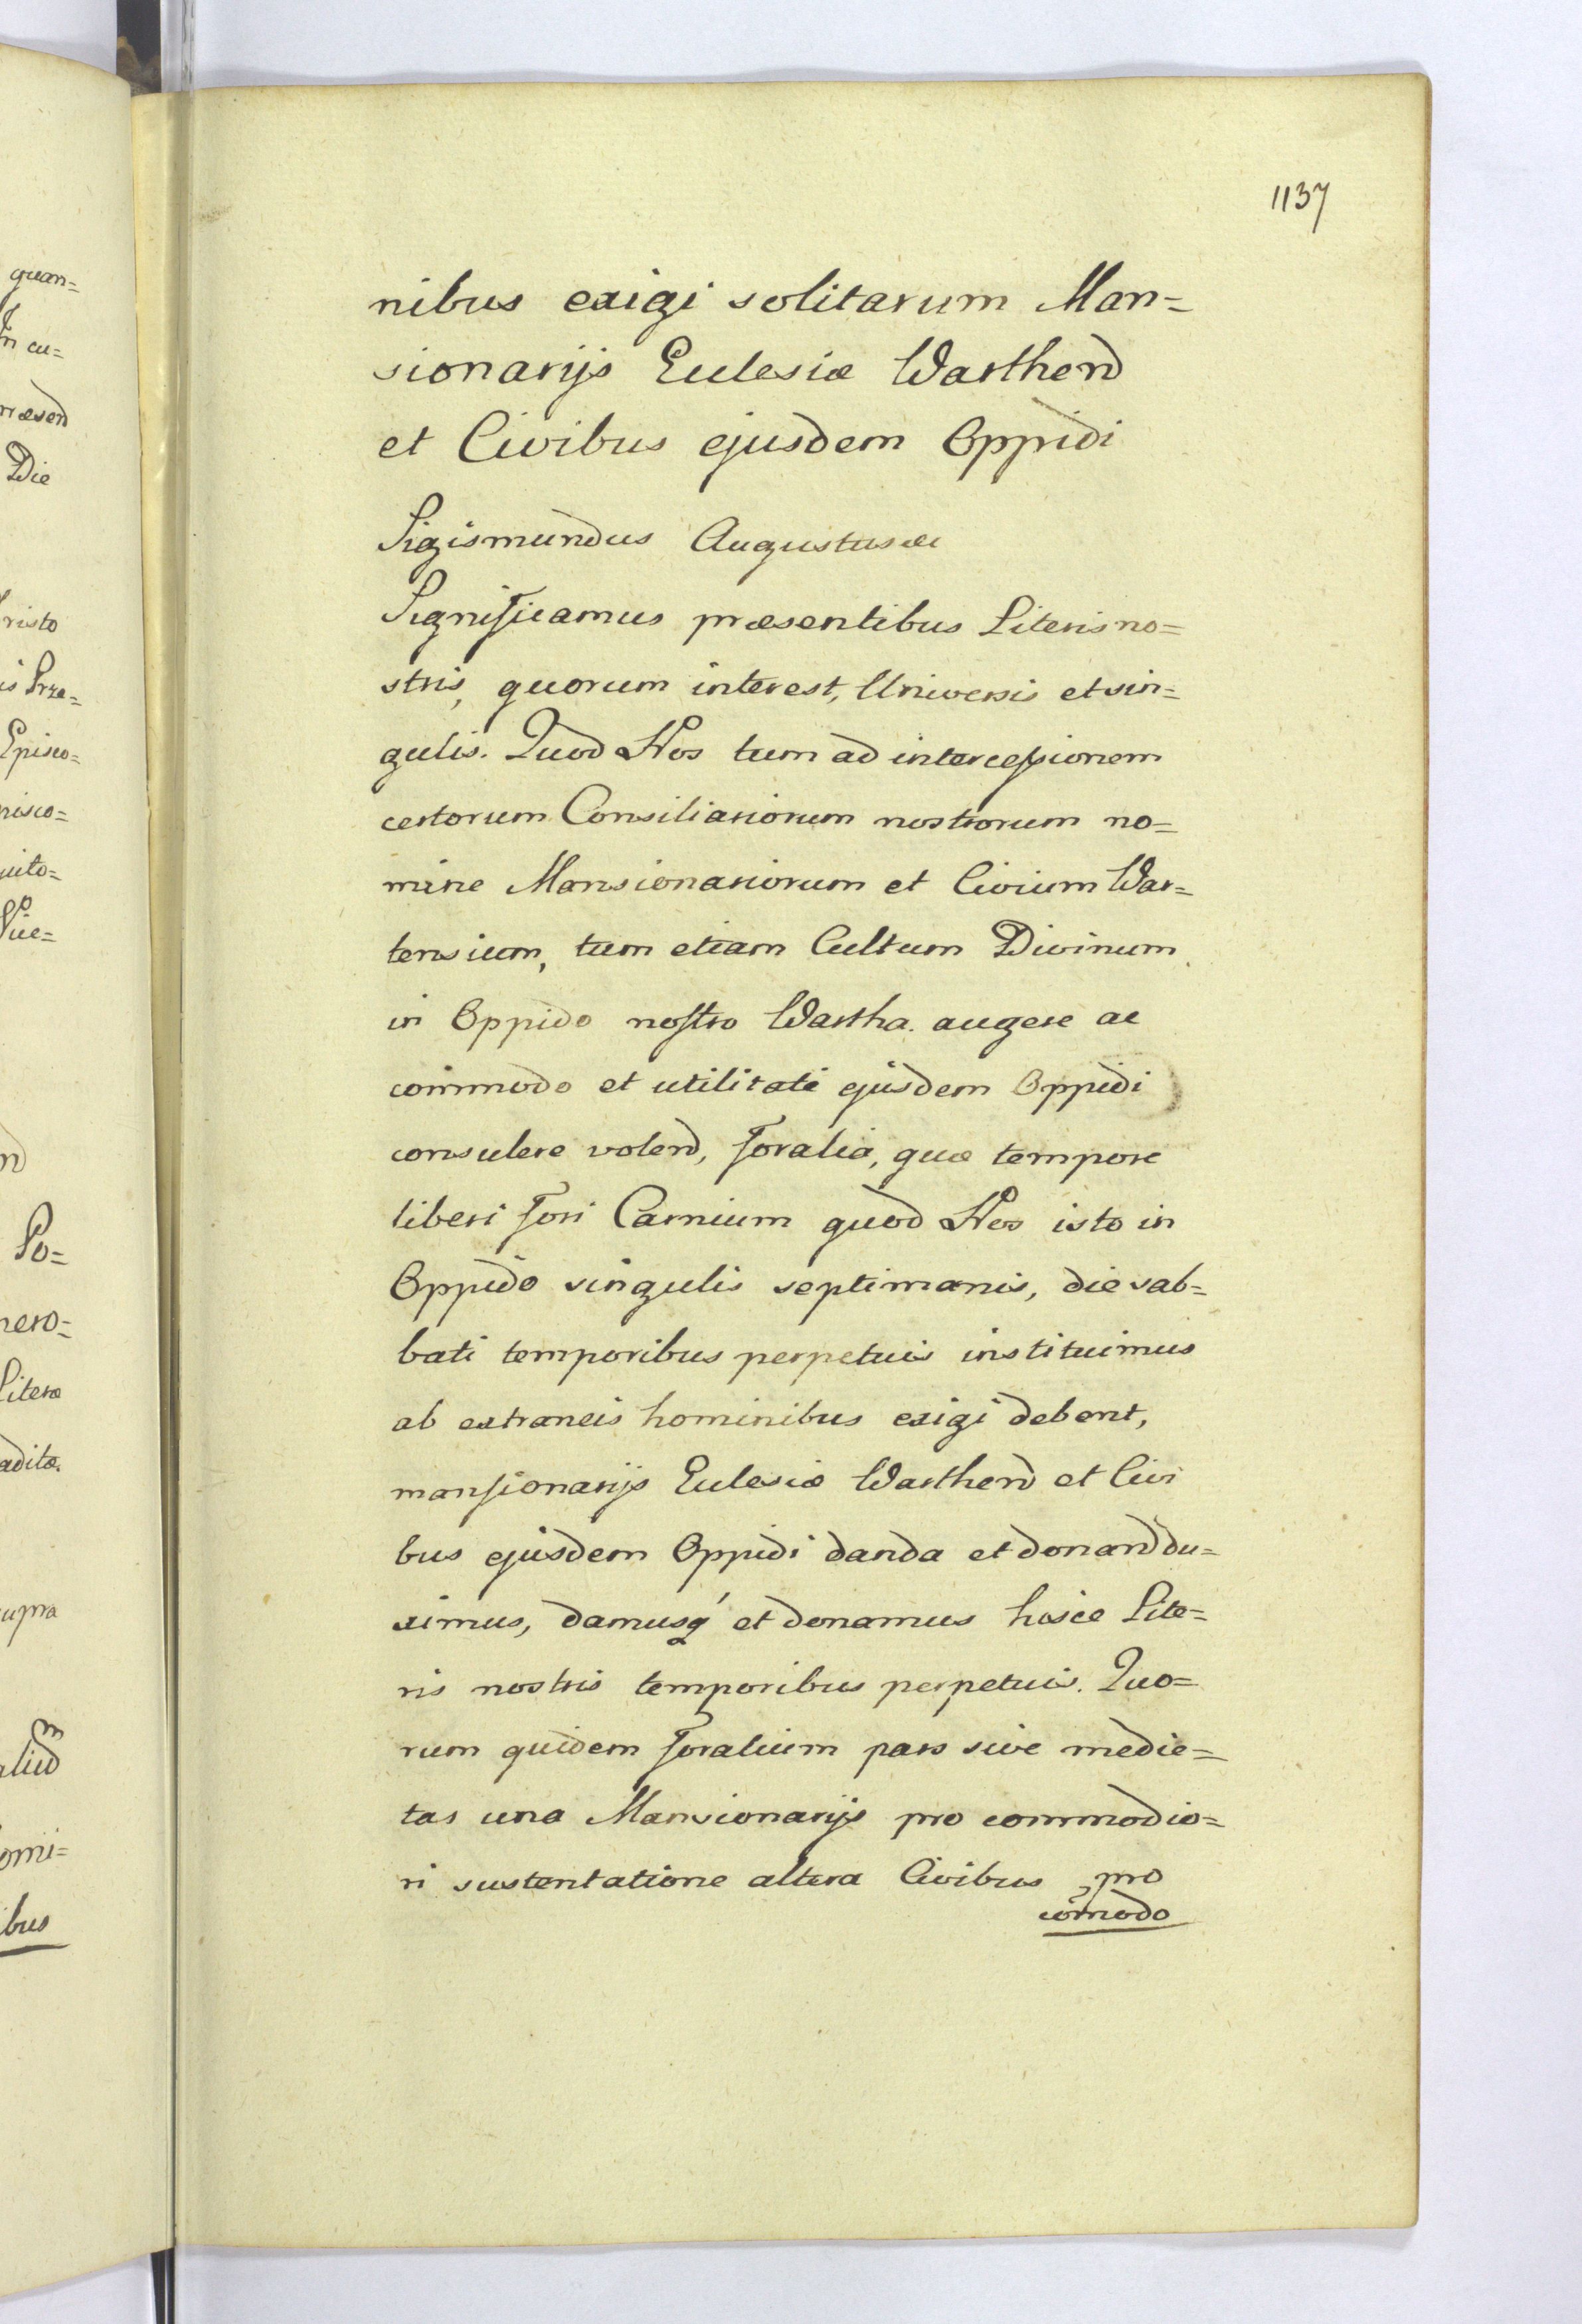 1137
nibus exigi solitarum Man=
sionarijs Ecclesiæ Warthen͠
et Civibus ejusdem Oppidi
Sigismundus Augustus etc
Significamus præsentibus Literis no=
stris, quorum interest, Universis et sin=
gulis. Quod Nos tum ad intercessionem
certorum Consiliariorum nostrorum no=
mine Mansionariorum et Civium War=
tensium, tum etiam Cultum Divinum
in Oppido nostro Wartha. augere ac
commodo et utilitati ejusdem Oppidi
consulere volen͠, foralia, quæ tempore
liberi fori Carnium quod Nos isto in
Oppido singulis septimanis, die sab=
bati temporibus perpetuis instituimus
ab extraneis hominibus exigi debent,
mansionarijs Ecclesiæ Warthen͠ et Civi
bus ejusdem Oppidi danda et donand du=
ximus, damusq́ et donamus hisce Lite=
ris nostris temporibus perpetuis. Quo=
rum quidem foralium pars sive medie=
tas una Mansionarijs pro commodio=
ri sustentatione altera Civibus pro
com̄odo
quan=
cu=
Die
risto
is Prze=
Episco=
pisco=
Po=
nero=
Literæ
adita.
supra
omi=
ibus